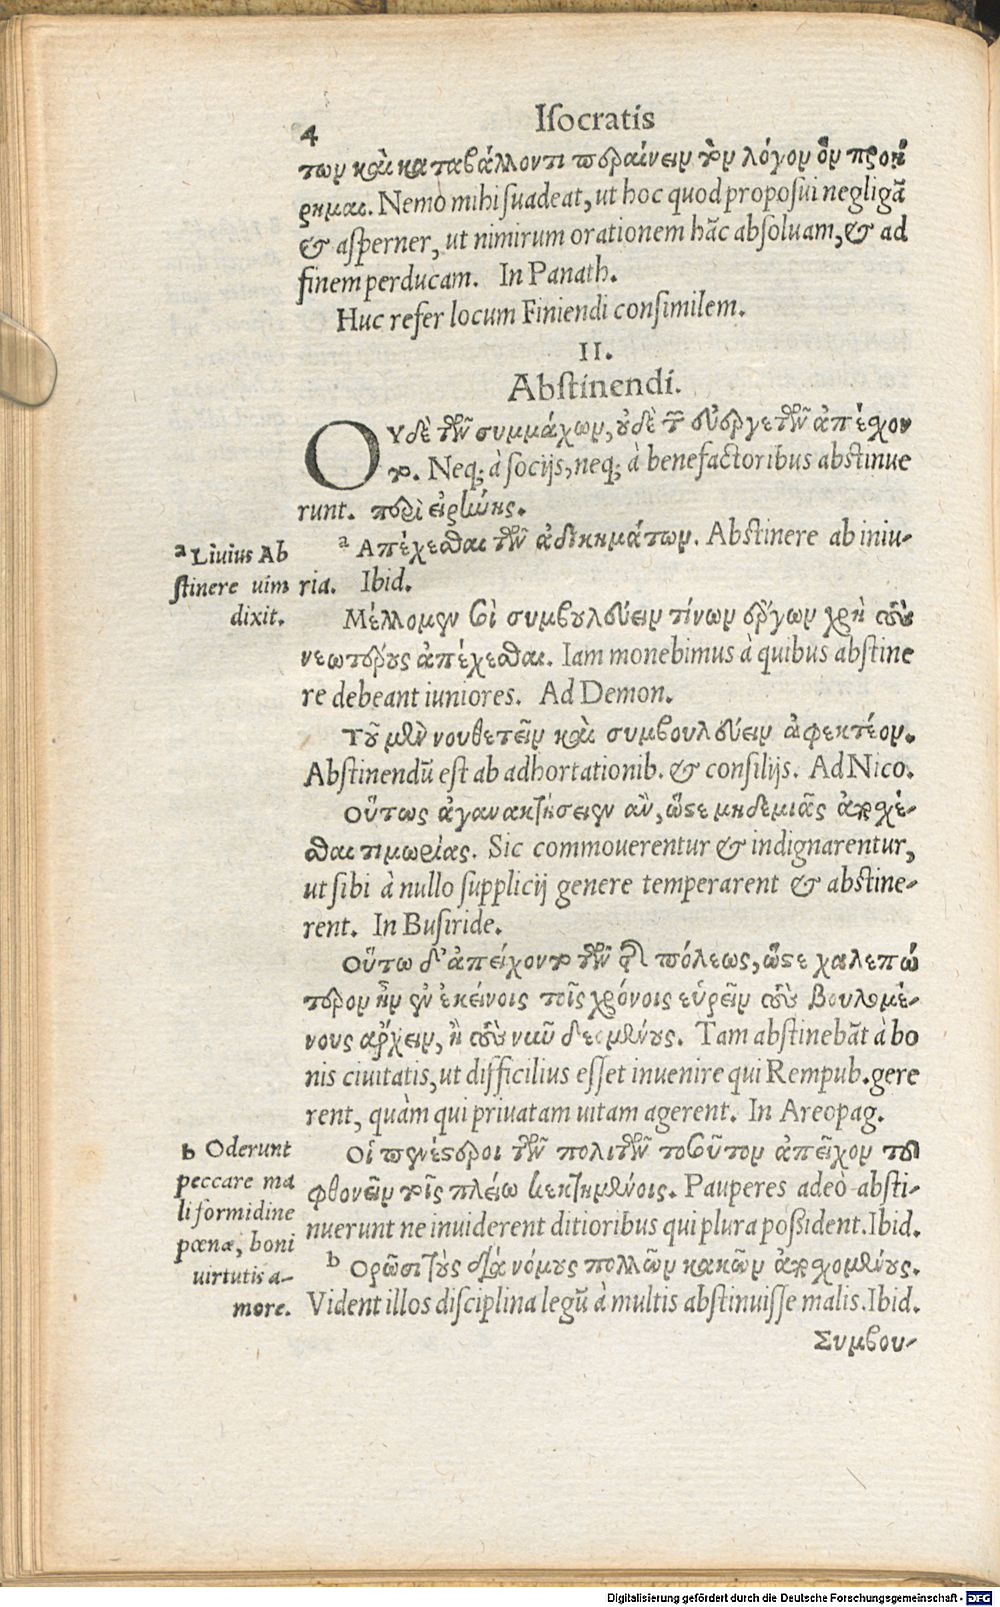 4
Isocratis
των καὶ καταβάλλοντι περαίνειν τὸν λόγον ὃν προῄ
ρημαι. Nemo mihi suadeat, ut hoc quod proposui negligã
& asperner, ut nimirum orationem hãc absoluam, & ad
finem perducam. In Panath.
Huc refer locum Finiendi consimilem.
II.
Abstinendi.
ΟΥδὲ τῶν συμμάχων, οὐδὲ τῶν εὐεργετῶν ἀπέχον
το. Neq; à socijs, neq; à benefactoribus abstinue
runt. περὶ εἰρήνης.
a Ἀπέχεσθαι τῶν ἀδικημάτων. Abstinere ab iniu-
ria. Ibid.
a Liuius Ab
stinere uim
dixit.
Μέλλομεν σοὶ συμβουλεύειν τίνων ἔργων χρὴ τοὺς
νεωτέρους ἀπέχεσθαι. Iam monebimus à quibus abstine
re debeant iuniores. Ad Demon.
Τοῦ μὲν νουθετεῖν καὶ συμβουλεύειν ἀφεκτέον.
Abstinendũ est ab adhortationib. & consilijs. Ad Nico.
Οὕτως ἀγανακτήσειεν ἂν, ὥστε μηδεμιᾶς ἀποσχέ-
σθαι τιμωρίας. Sic commouerentur & indignarentur,
ut sibi à nullo supplicij genere temperarent & abstine-
rent. In Busiride.
Οὕτω δ' ἀπείχοντο τῶν τῆς πόλεως, ὥστε χαλεπώ
τερον ἦν ἐν ἐκείνοις τοῖς χρόνοις εὑρεῖν τοὺς βουλομέ-
νους ἄρχειν, ἢ τοὺς νῦν δεομένους. Tam abstinebãt à bo
nis ciuitatis, ut difficilius esset inuenire qui Rempub. gere
rent, quàm qui priuatam uitam agerent. In Areopag.
Οἱ πενέστεροι τῶν πολιτῶν τοσοῦτον ἀπεῖχον τοῦ
φθονεῖν τοῖς πλείω κεκτημένοις. Pauperes adeò absti-
nuerunt ne inuiderent ditioribus qui plura possident. Ibid.
b Ὁρῶσι τοὺς διὰ νόμους πολλῶν κακῶν ἀποσχομένους.
Vident illos disciplina legũ à multis abstinuisse malis. Ibid.
b Oderunt
peccare ma
li formidine
pœnæ, boni
uirtutis a-
more.
Συμβου-
Digitalisierung gefördert durch die Deutsche Forschungsgemeinschaft - DFG